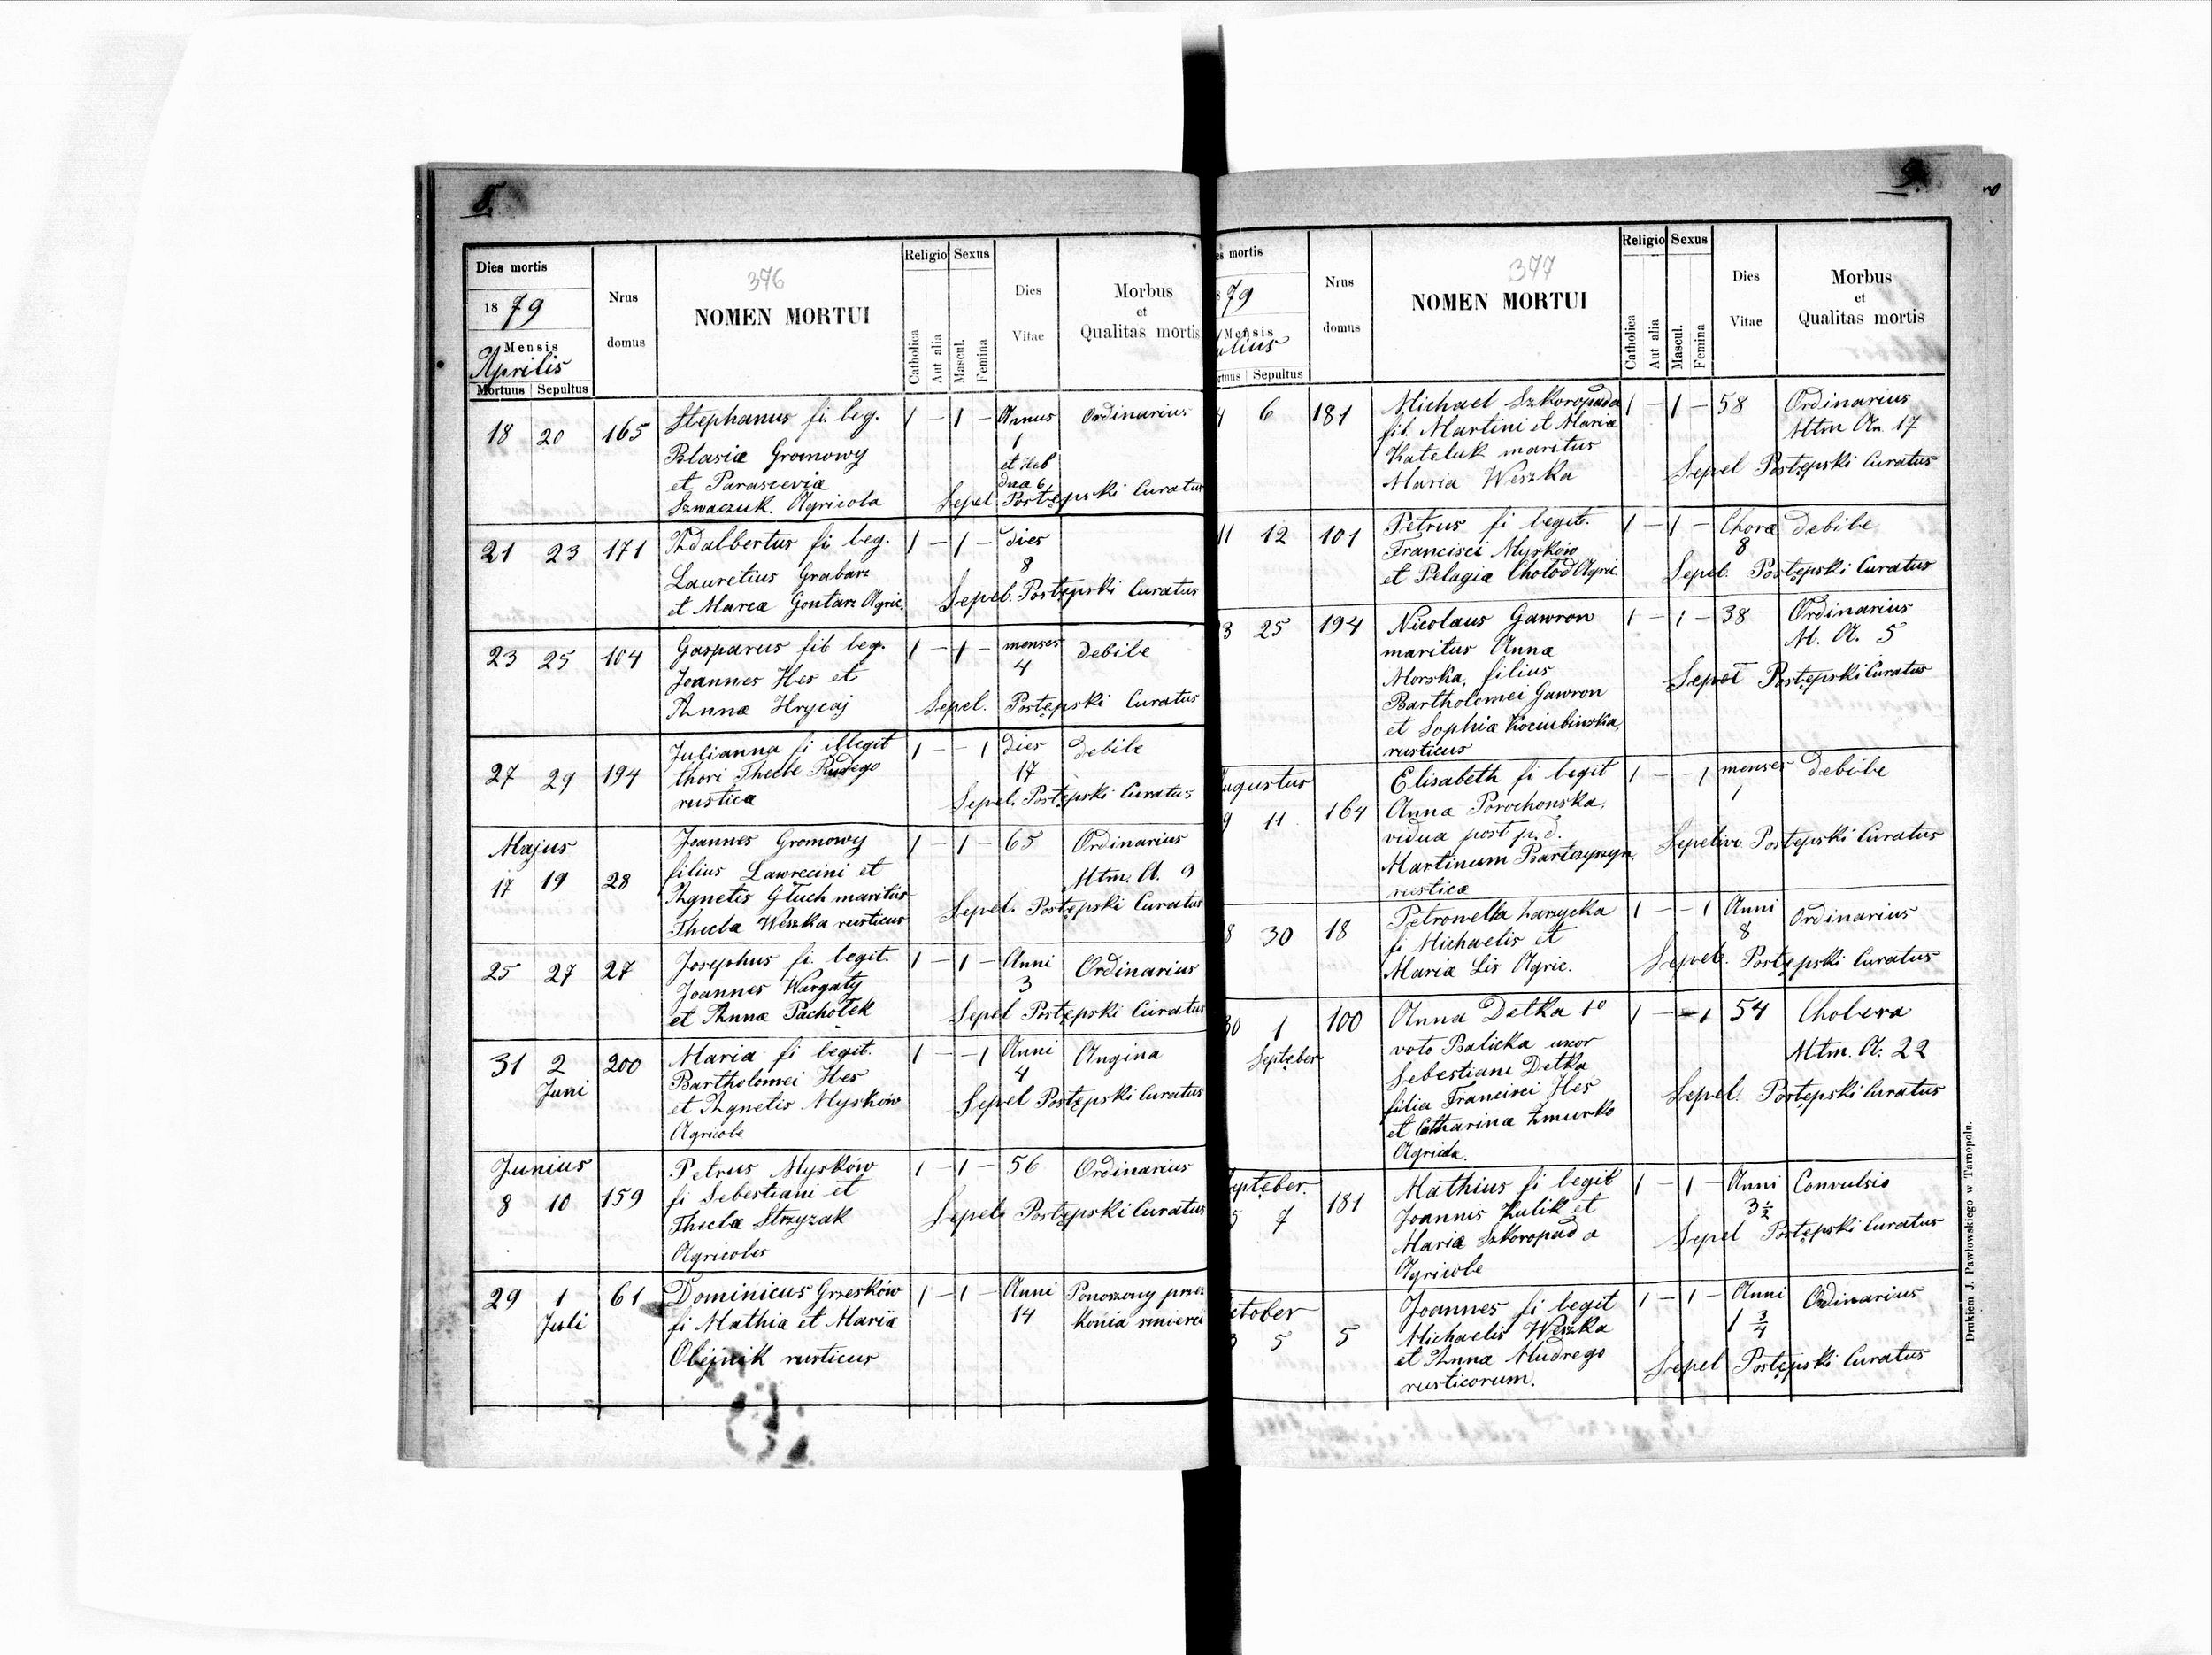 8.
Dies mortis
1879
Mensis
Aprilis
Mortuus Sepultus
Nrus
domus
376
NOMEN MORTUI
Religio Sexus
Catholica
Aut alia
Mascul.
Femina
Dies
Vitae
Morbus
et
Qualitas mortis
18 20 165 Stephanus fi. leg. 1 – 1 – Annus Ordinarius
1
Blasiæ Gromowy et Heb
et Parasceviæ dna 6
Szwaczuk. Agricola Sepel Postępski Curatus
21 23 171 Adalbertus fi leg. 1 – 1 – dies
8
Lauretius Grabarz
et Mariæ Gontarz Agric. Sepel. Postępski Curatus
23 25 104 Gasparus fil leg. 1 – 1 – menses debile
4
Joannes Hes et
Annæ Hrycaj Sepel. Postępski Curatus
27 29 194 Julianna fi illegit 1 – – 1 dies debile
17
thori Theclæ Rudego
rustica Sepel. Postępski Curatus
Majus
17 19 28 Joannes Gromowy 1 – 1 – 65 Ordinarius
filius Lawrecini et Mtm. A. 9
Agnetis Głuch maritus
Thecla Weszka rusticus Sepel. Postępski Curatus
25 27 27 Josephus fi. legit. 1 – 1 – Anni Ordinarius
3
Joannes Wargaty
et Annæ Pachołek Sepel Postępski Curatus
31 2 200 Maria fi legit. 1 – – 1 Anni Angina
Juni 4
Bartholomei Hes
et Agnetis Myśkow Sepel Postępski Curatus
Agricolæ
Junius
8 10 159 Petrus Myśków 1 – 1 – 56 Ordinarius
fi Sebestiani et
Theclæ Strzyżak Sepel. Postępski Curatus
Agricoles
29 1 61 Dominicus Grześków 1 – 1 – Anni Ponoszony przez
Juli 14 konia smierci
fi Mathiæ et Mariæ
Olejnik rusticus
9.
es mortis
79
Mensis
ulius
rtuus Sepultus
Nrus
domus
377
NOMEN MORTUI
Religio Sexus
Catholica
Aut alia
Mascul.
Femina
Dies
Vitae
Morbus
et
Qualitas mortis
4 6 181 Michael Szkoropada 1 – 1 – 58 Ordinarius
fil. Martini et Mariæ Mtm An. 17
Kateluk maritus
Maria Weszka Sepel Postępski Curatus
11 12 101 Petrus fi legit. 1 – 1 – Choræ debile
8
Francisci Myśków
et Pelagiæ Chołod Agric. Sepel. Postępski Curatus
3 25 194 Nicolaus Gawron 1 – 1 – 38 Ordinarius
maritus Annæ M. A. 5
Morska, filius
Bartholomei Gawron Sepel Postępski Curatus
et Sophiæ Kociubinska,
rusticus
ugustus
9 11 164 Elisabeth fi legit 1 – – 1 menses debile
1
Annæ Porochonska,
vidua post p. d.
Martinum Bartczyszyn, Sepelivi Postępski Curatus
rusticæ
8 30 18 Petronella Zarzycka 1 – – 1 Anni Ordinarius
8
fi Michaelis et
Mariæ Lis Agric. Sepel. Postępski Curatus
30 1 100 Anna Detka 1o 1 – – 1 54 Cholera
Septęber
voto Balicka uxor Mtm. A. 22
Sebestiani Detka
filia Francisci Hes Sepel. Postępski Curatus
et Catharinæ Żmurko
Agricola.
eptęber.
5 7 181 Mathius fi legit 1 – 1 – Anni Convulsio
3 1/2
Joannis Kulik et
Mariæ Szkoropada Sepel Postępski Curatus
Agricolæ
ctober
3 5 5 Joannes fi legit 1 – 1 – Anni Ordinarius
1 3/4
Michaelis Weszka
et Annæ Mudrego Sepel Postępski Curatus
rusticorum.
Drukiem J. Pawłowskiego w Tarnopolu.